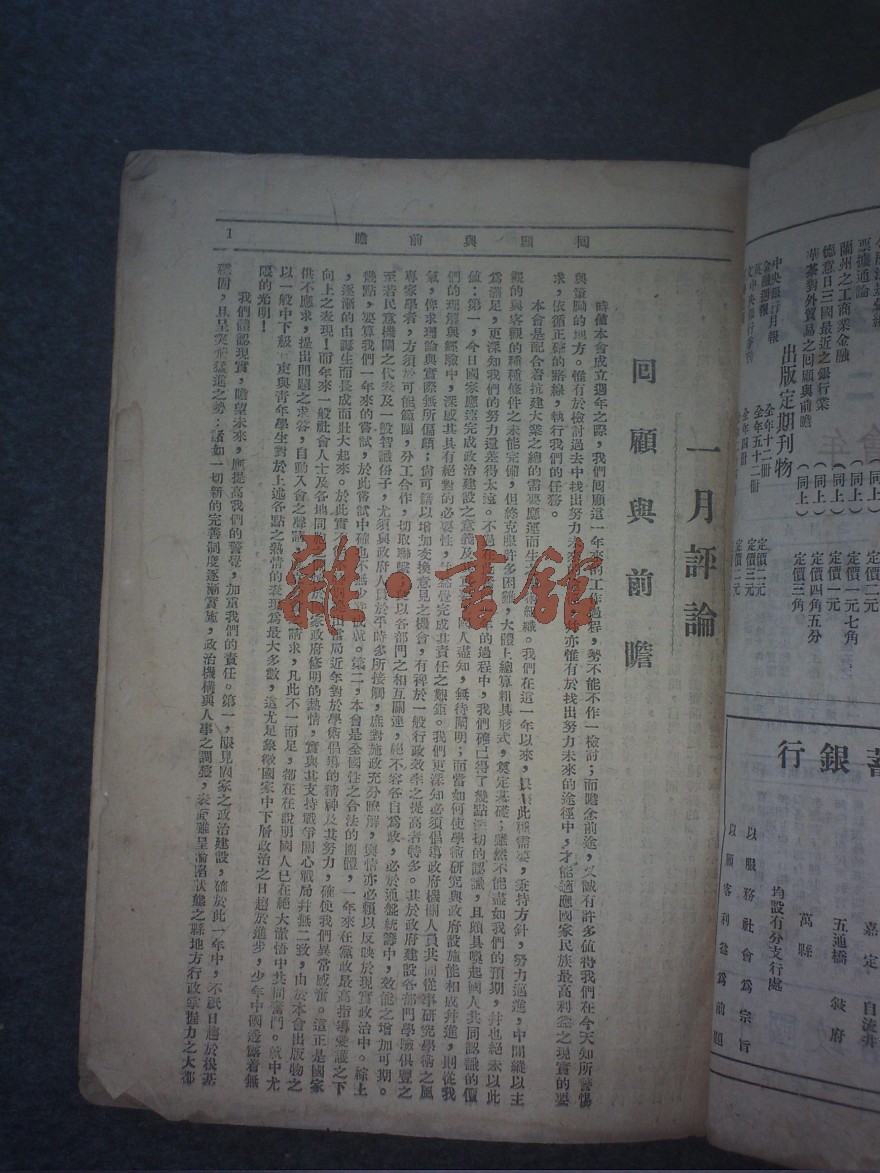 回顧與前瞻
1
一月評論
回顧與前瞻
時值本會成立週年之際,我們回顧這一年來的工作過程,勢不能不作一檢討;而瞻念前途,又誠有許多值得我們在今天知所警惕
與奮勵的地方。惟有於檢討過去中找出努力未來 亦惟有於找出努力未來的途徑中,才能適應國家民族最高利益之現實的要
求,依循正確的路線,執行我們的任務。
本會是配合着抗建大業之總的需要應運而生 組織。我們在這一年以來, 此種需要,秉持方針,努力邁進,中間縱以主
觀的與客觀的種種條件之未能完備,但終克服許多困難,大體上總算粗具形式,奠定基礎;雖然不能盡如我們的預期,幷也絕未以此
爲滿足,更深知我們的努力還差得太遠。不過 年的過程中,我們確已得了幾點深切的認識,且頗具喚起國人共同認識的價
值:第一,今日國家應該完成政治建設之意義及 國人盡知,無待闡明;而當如何使學術研究與政府設施能相成幷進,則從我
們的理解與經驗中,深感其具有絕對的必要性, 完成其責任之艱鉅。我們更深知必須倡導政府機關人員共同從事研究學術之風
氣,俾求理論與實際無所偏頗;尙可藉以增加交換意見之機會,有裨於一般行政效率之提高者特多。其於政府建設各部門學驗俱豐之
專家學者,方須於可能範圍,分工合作,切取聯繫 以各部門之相互關連,絕不容各自爲政,必於通盤統籌中,效能之增加可期。
至若民意機關之代表及一般智識份子,尤須與政府人員於平時多所接觸,庶對施政充分瞭解,輿情亦必賴以反映於現實政治中。綜上
幾點,要算我們一年來的嘗試,於此嘗試中確也不無少許成就。第二,本會是全國性之合法的團體,一年來在黨政最高指導愛護之下
,逐漸的由誕生而長成而壯大起來。於此實 當局近年對於學術倡導的精神及其努力,確使我們異常感奮。這正是國家
向上之表現!而年來一般社會人士及各地同 家政府修明的熱情,實與其支持戰爭關心戰局幷無二致,由於本會出版物之
供不應求,提出問題之求答,自動入會之聲請 請求,凡此不一而足,都在在說明國人已在絕大覺悟中共同奮鬥。就中尤
以一般中下級 吏與青年學生對於上述各點之熱情的表現爲最大多數,這尤足象徵國家中下層政治之日趨於進步,少年中國透露着無
限的光明!
我們體認現實,瞻望未來,應提高我們的警覺,加重我們的責任。第一,眼見國家之政治建設,確於此一年中,不祇日趨於根基
穩固,且呈突飛猛進之勢:諸如一切新的完善制度逐漸實施,政治機構與人事之調整,表面雖呈淪陷狀態之縣地方行政掌握力之大都
票據通論
(同上)
定價二元
蘭州之工商業金融
(同上)
定價一元七角
德意日三國最近之銀行業
(同上)
定價一元
華茶對外貿易之回顧與前瞻
(同上)
定價四角五分
定價三角
出版定期刊物
中央銀行月報
全年十二冊
定價二元
金融週報
全年五十二冊
定價三元
蓄銀行
嘉定
自流井
五通橋
敍府
萬縣
均設有分支行處
以服務社會爲宗旨
以顧客利益爲前題
雜·書館